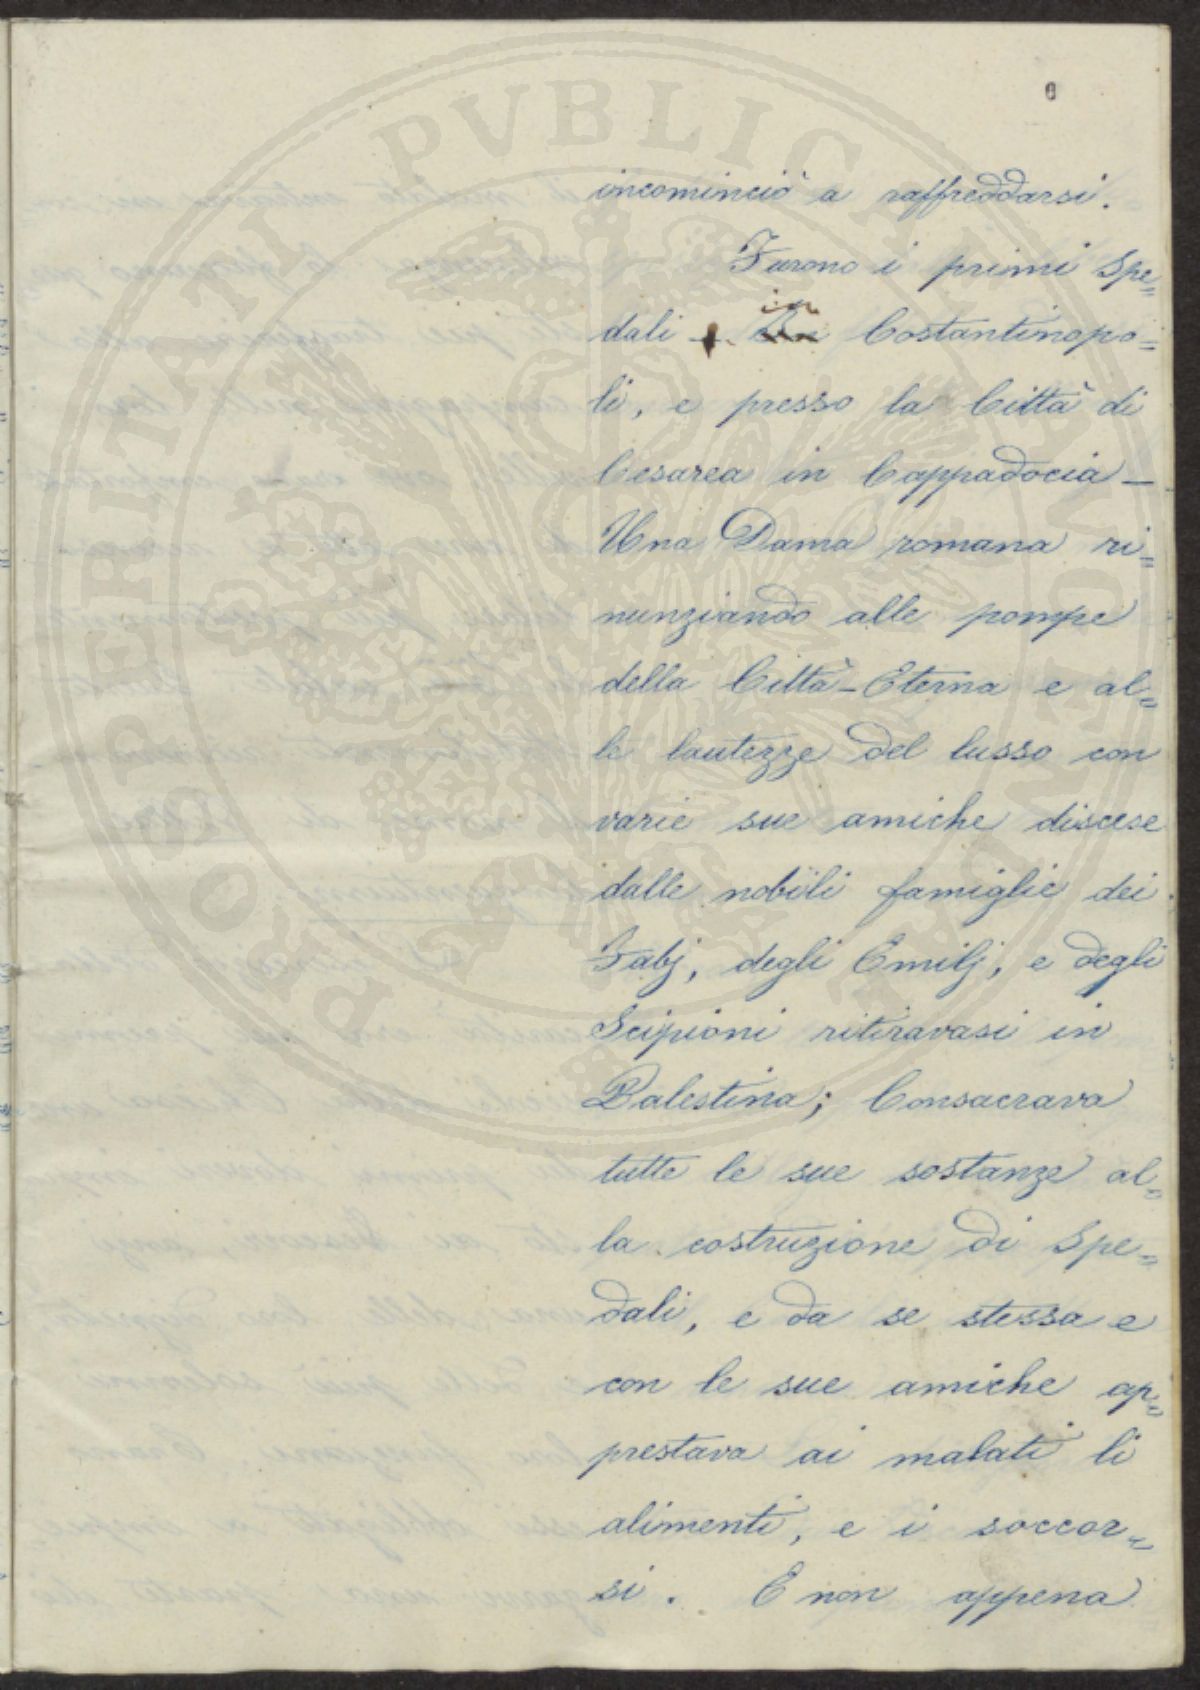 PROSPERITATI PVBLICAE
incominciò a raffreddarsi.
Furono i primi Spe=
dali – in Costantinopo=
li, e presso la Città di
Cesarea in Cappadocia –
Una Dama romana ri=
nunziando alle pompe
della Città-Eterna e al=
le lautezze del lusso con
varie sue amiche discese
dalle nobili famiglie dei
Fabj, degli Emilj, e degli
Scipioni ritiravasi in
Palestina; Consacrava
tutte le sue sostanze al=
la costruzione di Spe=
dali, e da se stessa e
con le sue amiche ap=
prestava ai malati li
alimenti, e i soccor=
si. E non appena